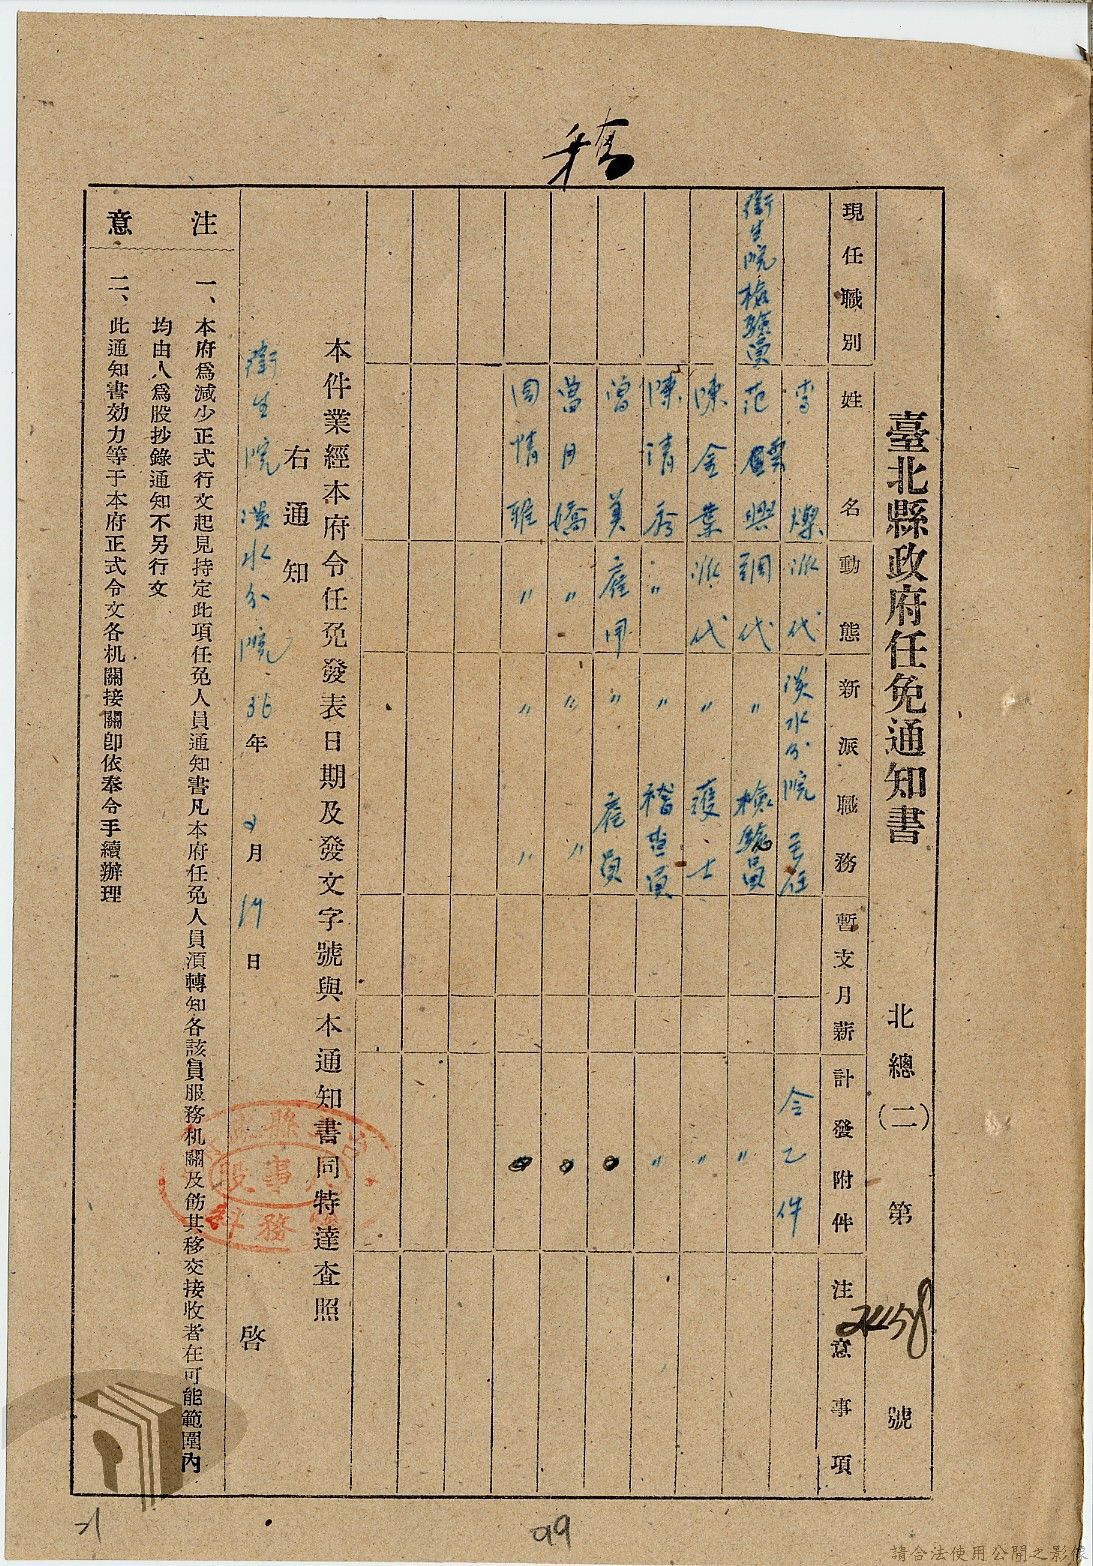 稿
臺北縣政府任免通知書 北總(二)第2458號
現任職別 姓名 動態 新派職務 暫支月薪 計發附件 注意事項
李燦 派代 淡水分院主任 令乙件
衛生院檢驗員 范 興 調代 〃 檢驗員 〃
陳金葉 派代 〃 護士 〃
陳清秀 〃 〃 稽查員 〃
曾美 雇用 〃 雇員 0
曾月嬌 〃 〃 〃 0
周情雅 〃 〃 〃 0
本件業經本府令任免發表日期及發文字號與本通知書同特達查照
右通知
衛生院淡水分院 36年 月19日 啓
注意
一、本府爲減少正式行文起見持定此項任免人員通知書凡本府任免人員須轉知各該員服務机關及飭其移交接收者在可能範圍內
均由人爲股抄錄通知不另行文
二、此通知書効力等于本府正式令文各机關接關卽依奉令手續辦理
人事股
總務科
99
請合法使用公開之影像